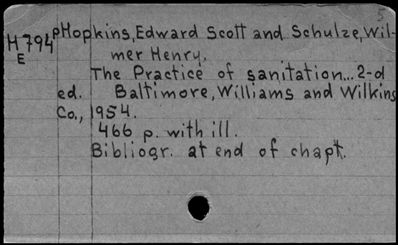 5
pHopkins, Edward Scott and Schulze, Wil-
H 794
mer Henry.
E
The Practice of sanitation... 2-d
ed. Baltimore, Williams and Wilkins
Co., 1954.
466 p. with ill.
Bibliogr. at end of chapt.